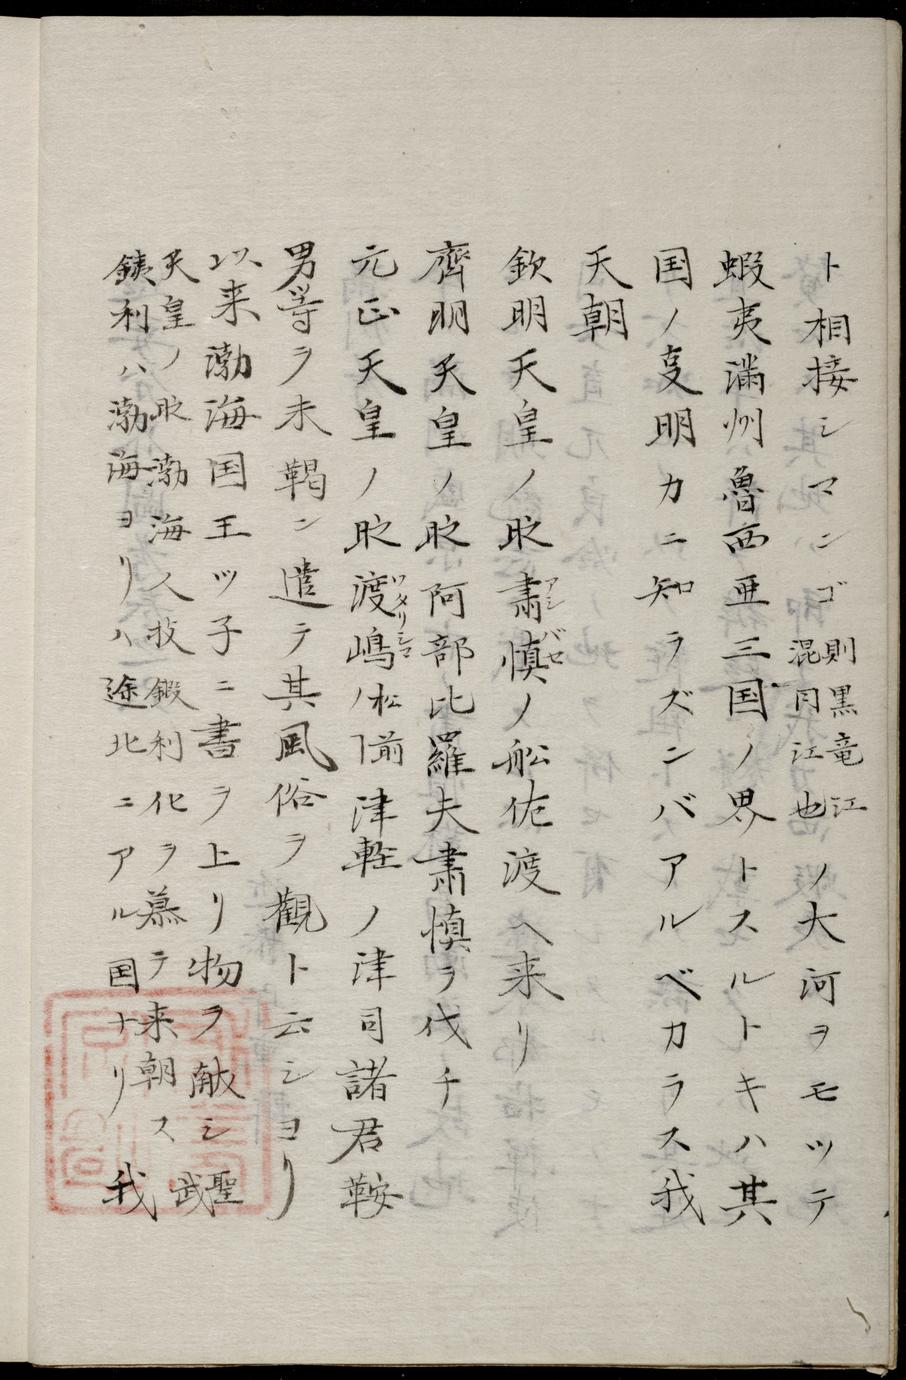 ト相接シマンゴ則黒竜江混同江也ノ大河ヲモツテ
蝦夷満州魯西亜三国ノ界トスルトキハ其
国ノ変明カニ知ラズンバアルベカラス我
天朝
欽明天皇ノ時肅慎アシバセノ舩佐渡ヘ来リ
齊明天皇ノ時阿部比羅夫肅慎ヲ伐チ
元正天皇ノ時渡嶋ワタリシマノ松前津軽ノ津司諸君鞍
男等ヲ末鞨ニ遣テ其風俗ヲ觀ト云シヨリ
以来渤海国王ツ子ニ書ヲ上リ物ヲ献シ聖武
天皇ノ時渤海人及鐵利化ヲ慕テ来朝ス
鐵利ハ渤海ヨリハ途北ニアル国ナリ我